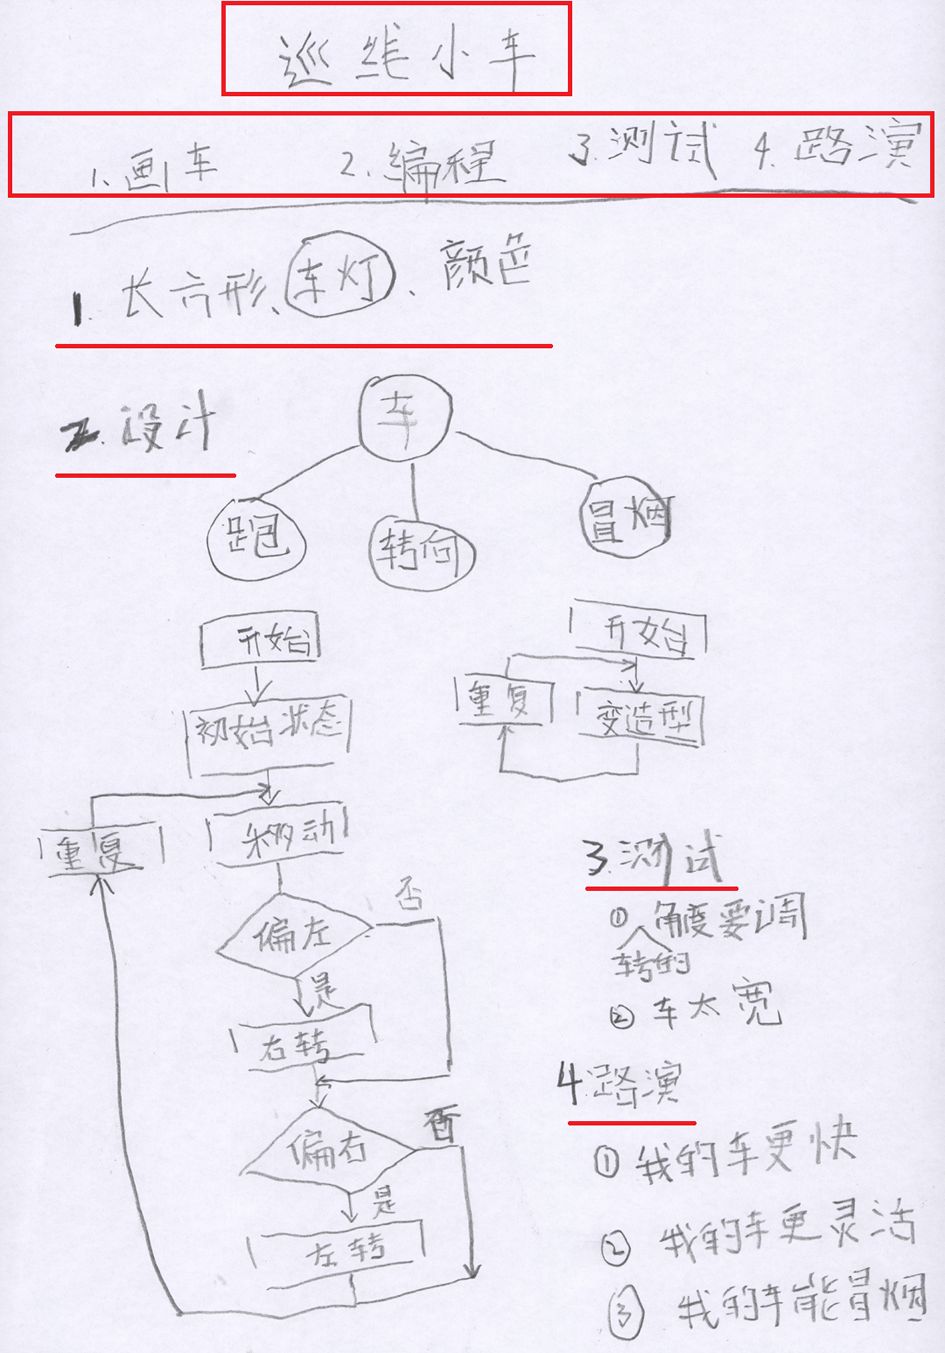 巡线小车
1. 画车 2. 编程 3. 测试 4. 路演
1. 长方形、车灯、颜色
2. 设计
车
跑 转向 冒烟
开始
初始状态
重复
移动
偏左
否
是
右转
偏右
否
是
左转
开始
重复
变造型
3. 测试
① 角度要调
转的
② 车太宽
4 路演
① 我的车更快
② 我的车更灵活
③ 我的车能冒烟